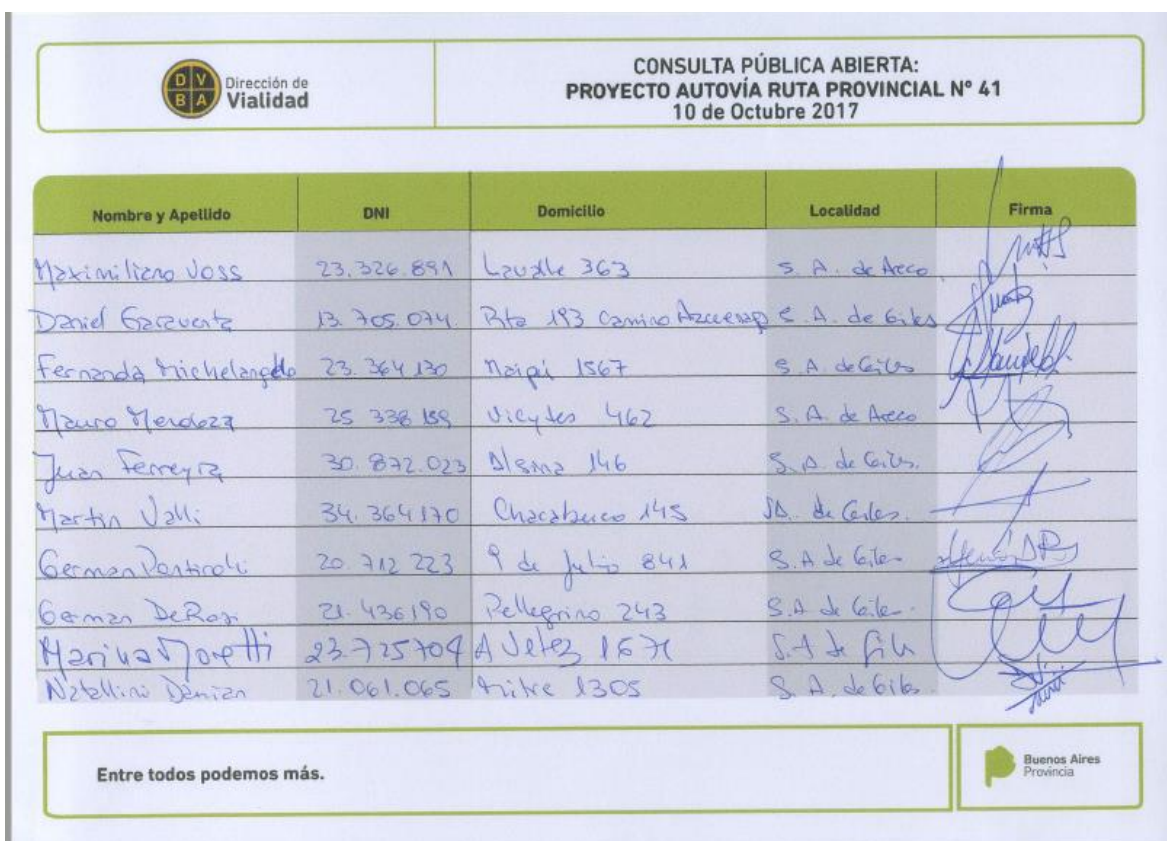 D V B A Dirección de Vialidad
CONSULTA PÚBLICA ABIERTA:
PROYECTO AUTOVÍA RUTA PROVINCIAL Nº 41
10 de Octubre 2017
Nombre y Apellido DNI Domicilio Localidad Firma
Maximiliano Voss 23.326.891 Lavalle 363 S. A. de Areco
Daniel 13.705.074 Rta 193 Camino S. A. de Giles
Fernanda Michelangelo 23.364.130 Maipú 1567 S. A. de Giles
Mauro Mendoza 25 338 462 S. A. de Areco
Juan Ferreyra 30.872.023 Alsina 146 S. A. de Giles.
Martin Valli 34.364170 Chacabuco 145 de Giles.
German 20.712 223 9 de Julio 841 S.A de Giles
German DeRosi 21.436190 Pellegrino 243 S.A de Giles.
Marina Moretti 23.725704 A Velez S.A de Giles
Natallini Damian 21.061.065 Mitre 1305 S. A. de Giles.
Entre todos podemos más.
Buenos Aires
Provincia